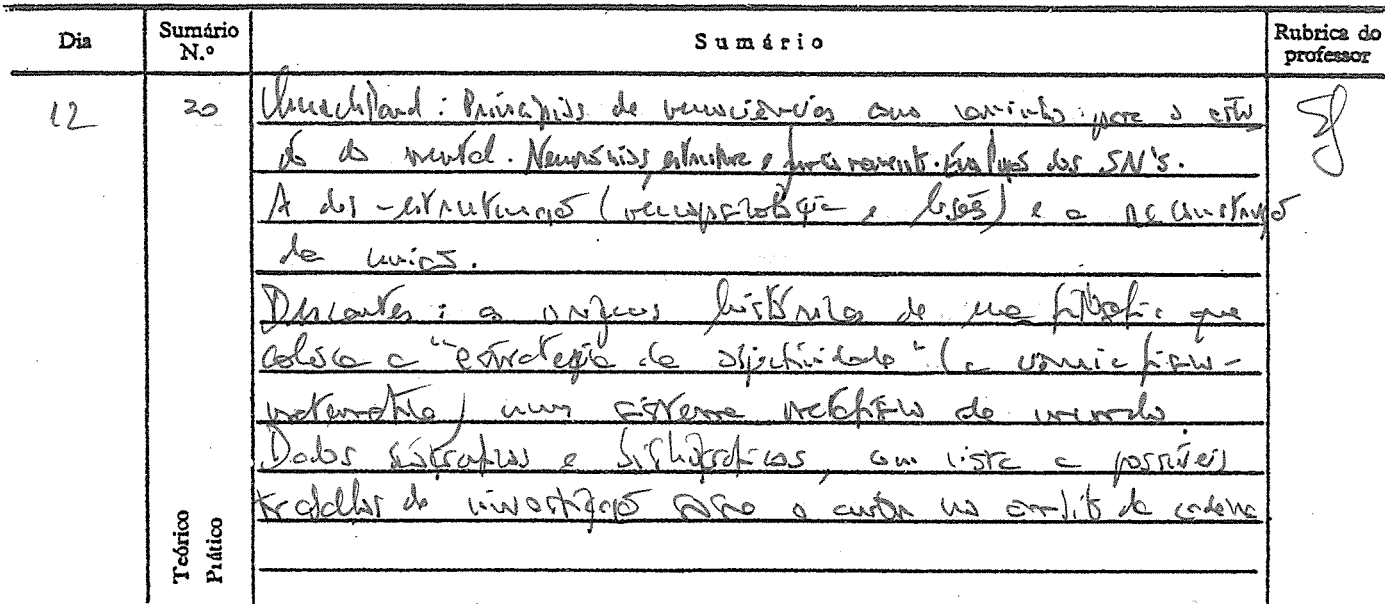 Dia
Sumário N.º
Sumário
Rubrica do professor
12
20
Churchland: Princípios de neurociências como caminho para o estu
do do mental. Neurónios, estrutura e funcionamento. Evolução dos SN's.
A des-estruturação (neuropatologia e lesões) e a reconstrução
da
Descartes: as origens históricas de uma filosofia que
coloca a "estratégia da objectividade" (a ciência físico-
matemática) num sistema metafísico do mundo
Dados biográficos e bibliográficos, com vista a possíveis
trabalhos de investigação sobre o autor no âmbito da cadeira
Teórico
Prático